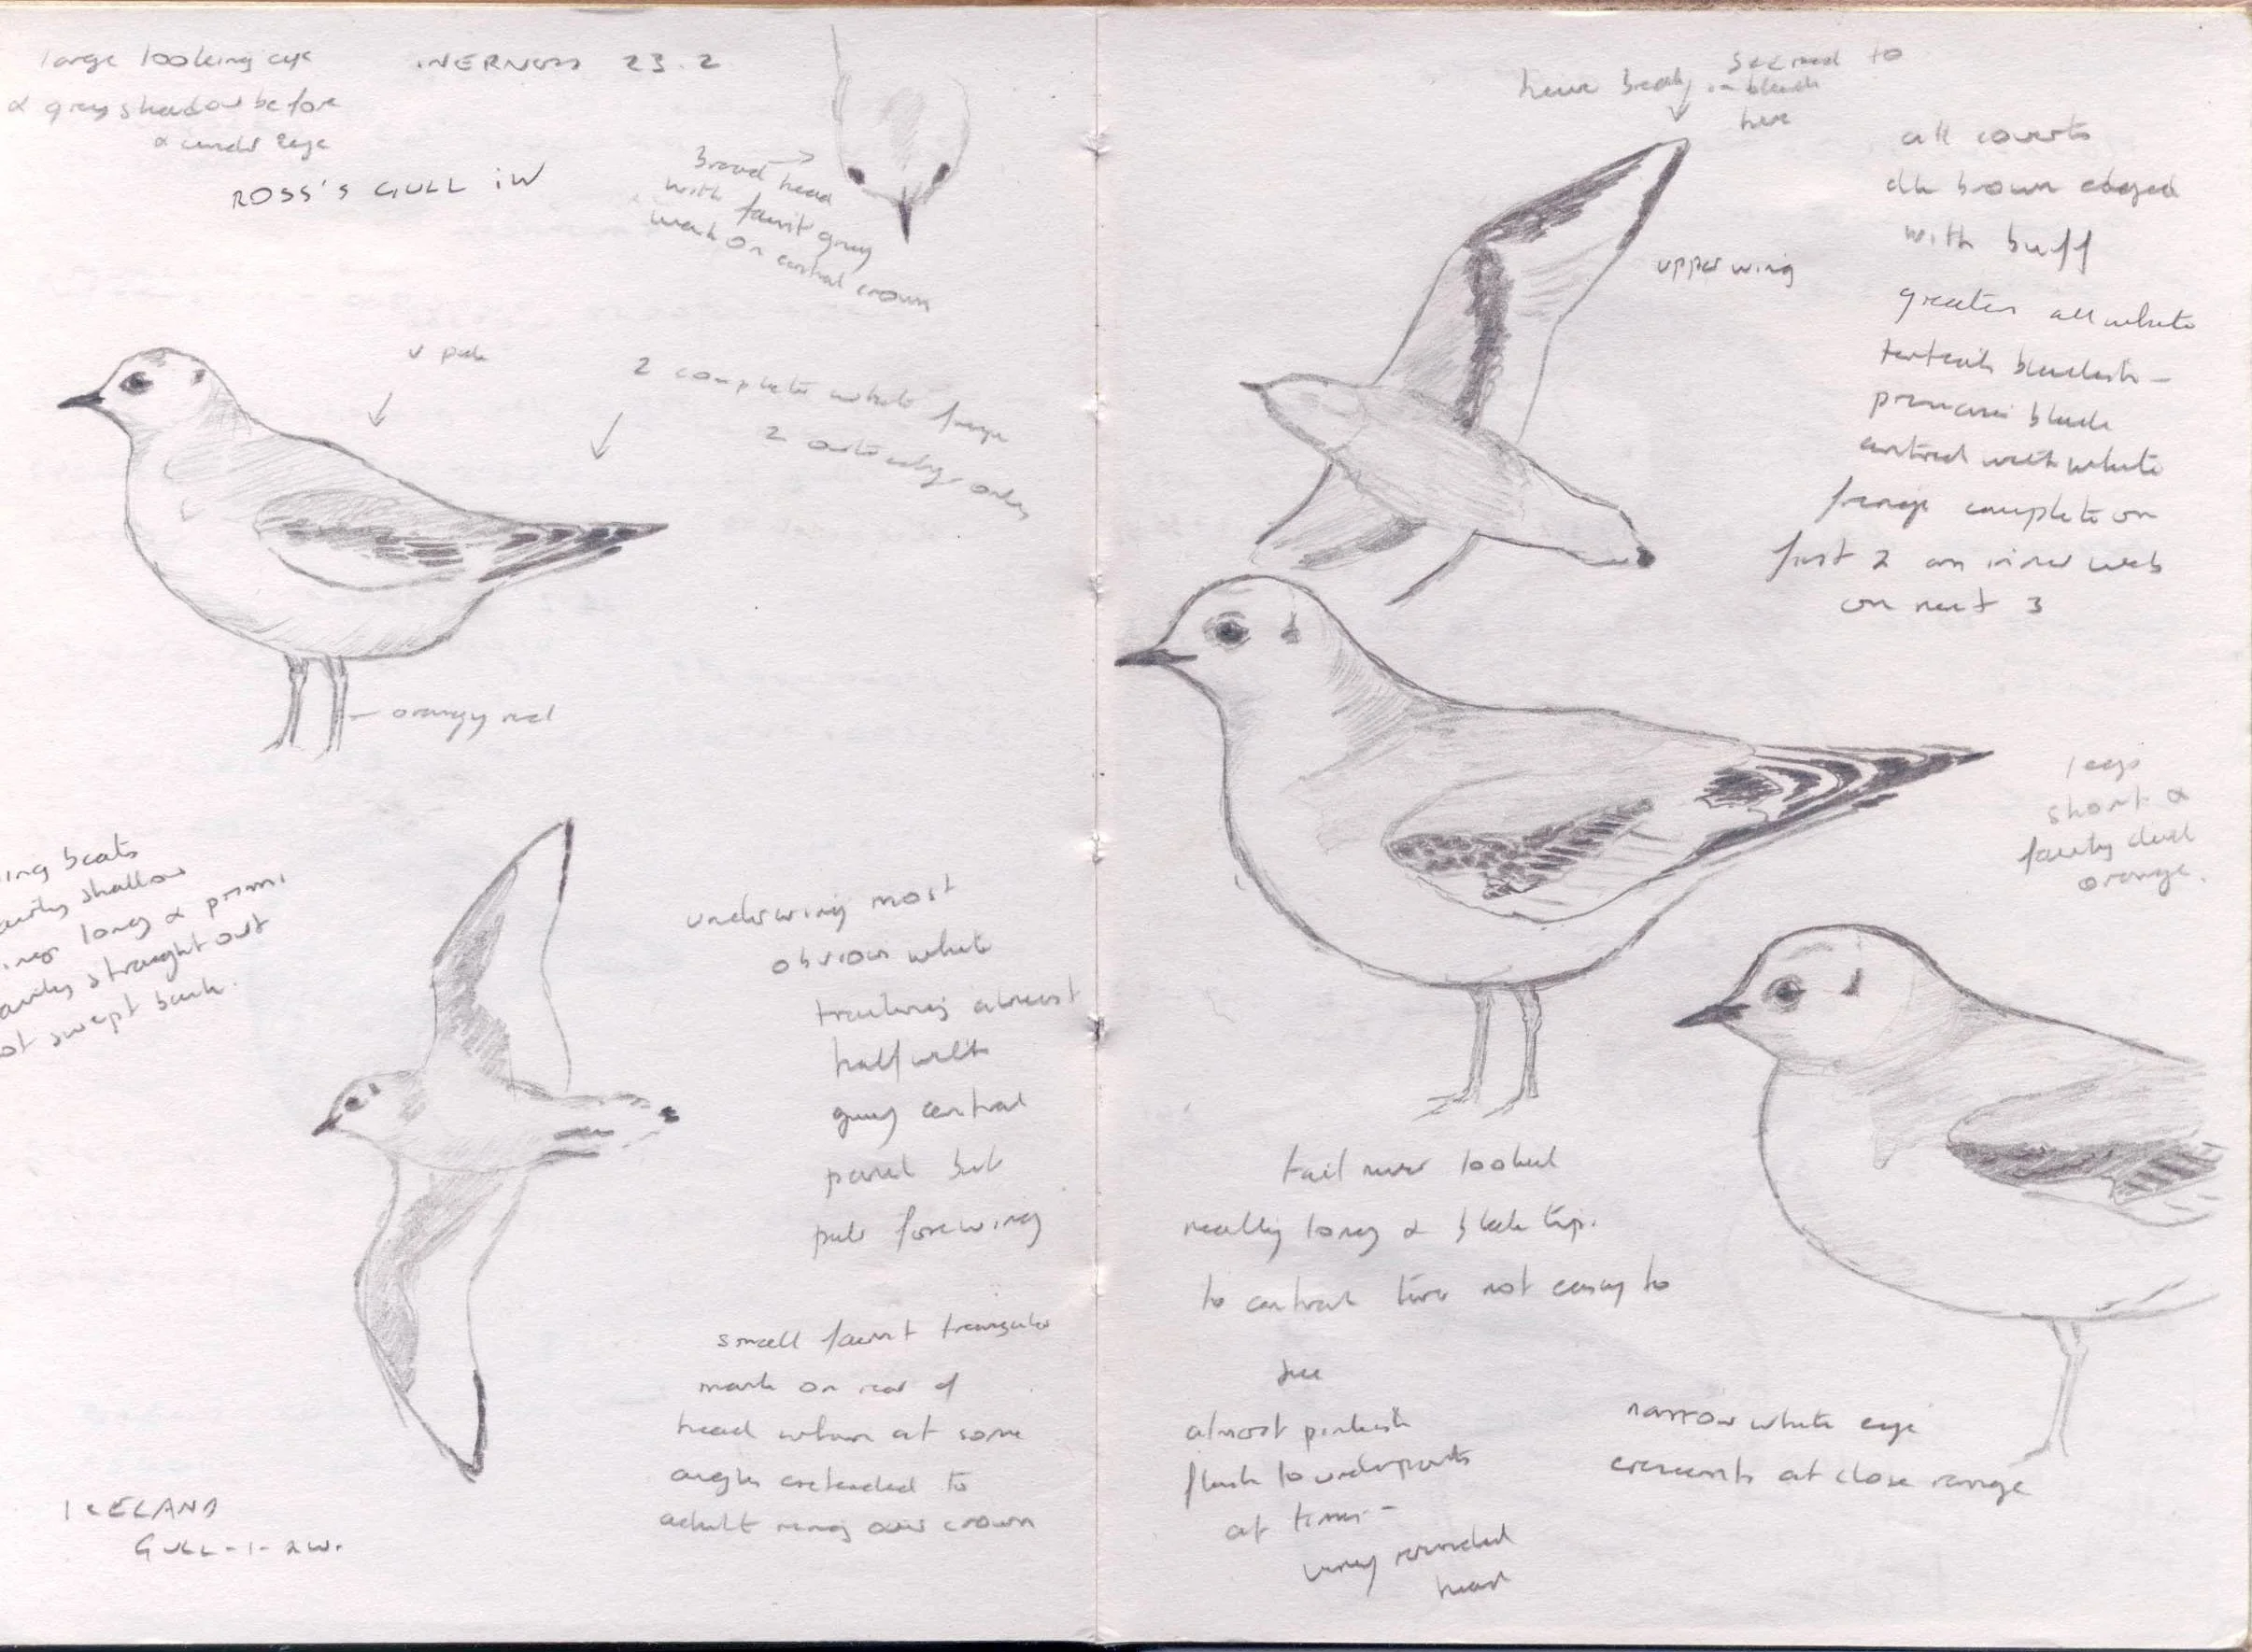 large looking eye
& grey shadow before
& under eye
INERNESS 23.2
ROSS'S GULL 1W
Broad head
with faint grey
mark on central crown
v pale
2 complete white fringe
2 outer edge only
orangy red
ing beats
shallow
long & prim.
straight out
ot swept back.
underwing most
obvious white
trailing almost
half with
grey central
panel but
pale forewing
small faint triangular
mark on rear of
head when at some
angles extended to
adult ring over crown
ICELAND
GULL - 1 - 2W.
seemed to
have break in black
here
upperwing
all coverts
dk brown edged
with buff
greater all white
tertials blackish -
primaries black
centred with white
fringe complete on
first 2 on inner web
on next 3
legs
short &
fairly dull
orange.
tail never looked
really long & black tip.
to central two not easy to
see
almost pinkish
flush to underparts
at times -
very rounded
head
narrow white eye
crescents at close range